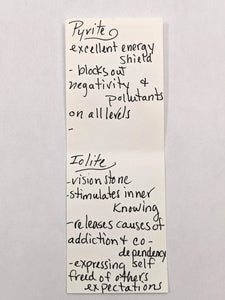 Pyrite
excellent energy
shield
- blocks out
negativity &
pollutants
on all levels
-
Iolite
-vision stone
-stimulates inner
knowing
-releases causes of
addiction & co-
dependency
-expressing self
freed of others
expectations